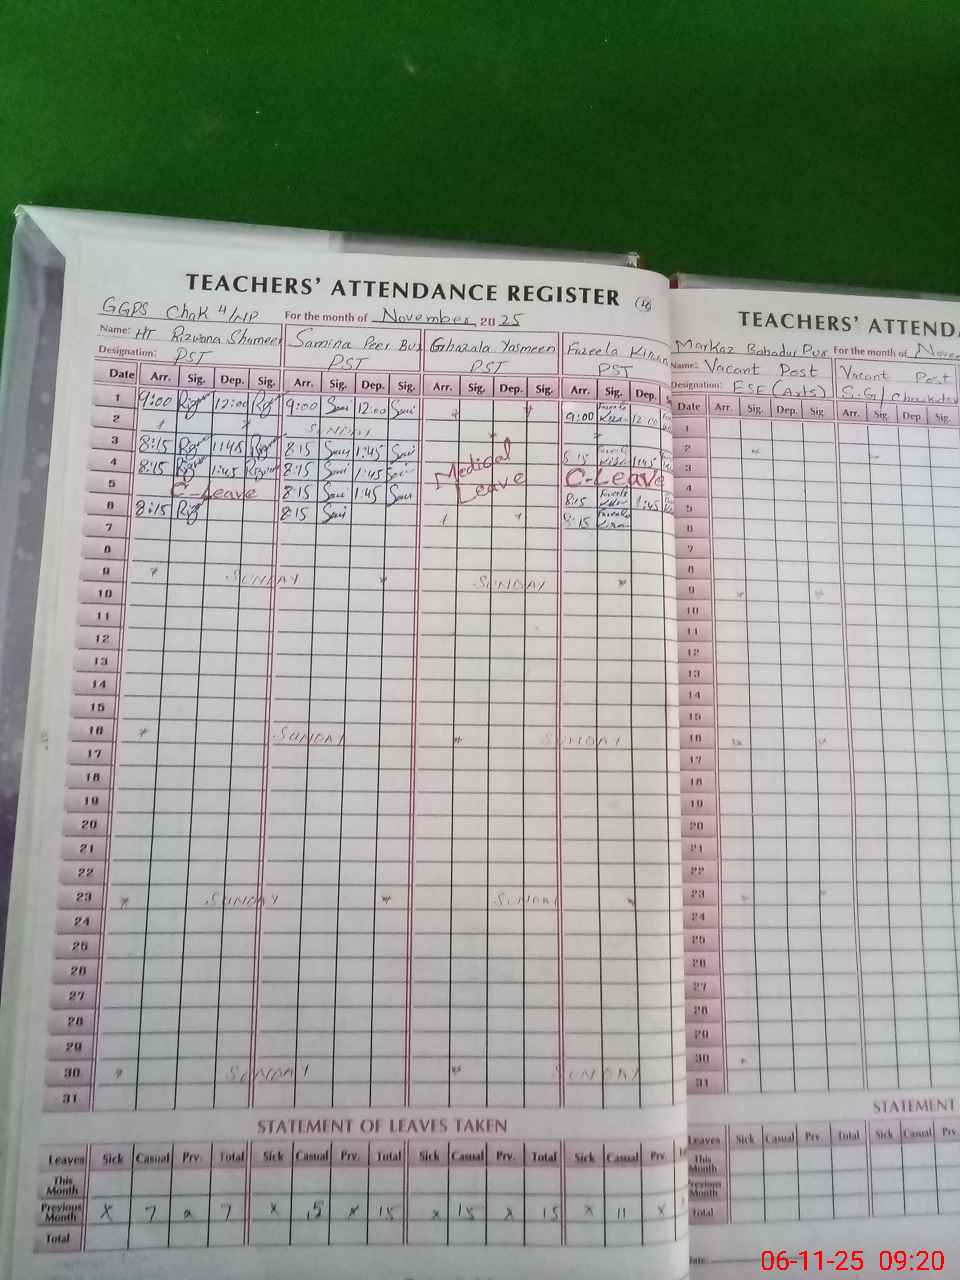 TEACHERS' ATTENDANCE REGISTER
GGPS Chak 4/NP For the month of November 2025
Name: HT Rizwana Shameer Samina Peer Bux Ghazala Yasmeen Fazeela Kiran
Designation: PST PST PST PST
Date Arr. Sig. Dep. Sig. Arr. Sig. Dep. Sig. Arr. Sig. Dep. Sig. Arr. Sig. Dep.
1 9:00 12:00 9:00 12:00 9:00 12:00
2 SUNDAY
3 8:15 1:45 8:15 1:45 8:15 1:45
4 8:15 1:45 8:15 1:45 Medical Leave C-Leave
5 C-Leave 8:15 1:45 8:15 1:45
6 8:15 8:15 8:15
7
8
9 SUNDAY SUNDAY
10
11
12
13
14
15
16 SUNDAY SUNDAY
17
18
19
20
21
22
23 SUNDAY SUNDAY
24
25
26
27
28
29
30 SUNDAY SUNDAY
31
STATEMENT OF LEAVES TAKEN
Leaves Sick Casual Prv. Total Sick Casual Prv. Total Sick Casual Prv. Total Sick Casual Prv.
This Month
Previous Month x 7 x 7 x 15 x 15 x 15 x 15 x 11 x
Total
TEACHERS' ATTENDA
Markaz Bahadur Pur For the month of Nove
Name: Vacant Post Vacant Post
Designation: ESE (Arts) S.G/
Date Arr. Sig. Dep. Sig. Arr. Sig. Dep Sig
1
2
3
4
5
6
7
8
9
10
11
12
13
14
15
16
17
18
19
20
21
22
23
24
25
26
27
28
29
30
31
STATEMENT
Leaves Sick Casual Prv. Total Sick Casual Prv.
This Month
Previous Month
Total
Date:
06-11-25 09:20